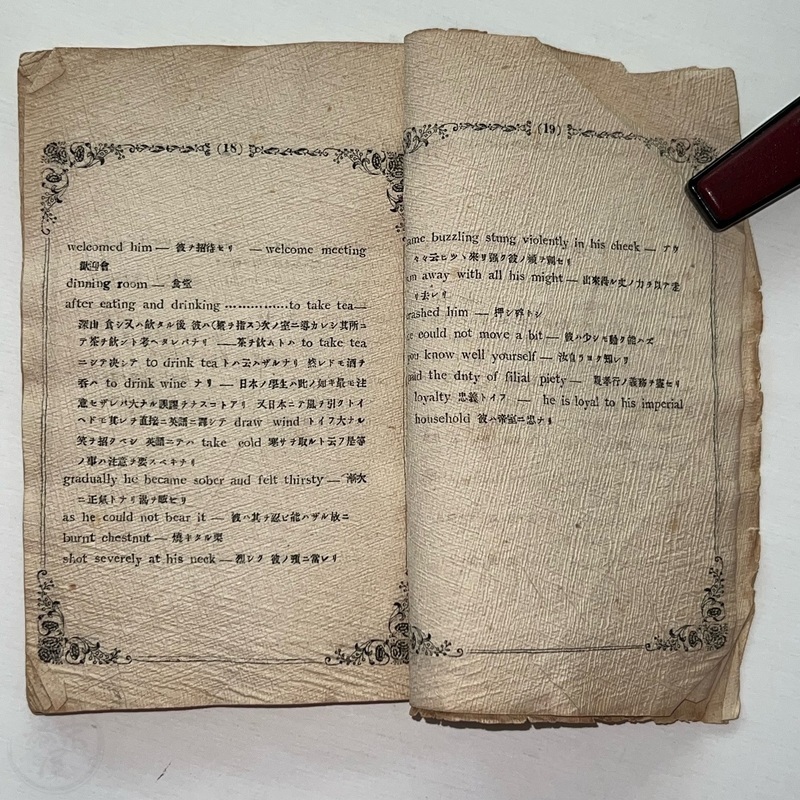 (18)
welcomed him — 彼ヲ招待セリ — welcome meeting
歡迎會
dinning room — 食堂
after eating and drinking ...............to take tea—
食シ又ハ飲タル後 彼ハ(猿ヲ指ス)次ノ室ニ導カレシ其所ニ
テ茶ヲ飲ント考ヘタレバナリ —茶ヲ飲ムトハ to take tea
ニシテ決シテ to drink tea トハ云ハザルナリ 然レドモ酒ヲ
呑ハ to drink wine ナリ — 日本ノ學生ハ此ノ如キ最モ注
意セザレバ大ナル誤譯ヲナスコトアリ 又日本ニテ風ヲ引クトイ
ヘドモ其レヲ直接ニ英語ニ譯シテ draw wind トイフ大ナル
笑ヲ招クベシ 英語ニテハ take cold 寒サヲ取ルト云フ是等
ノ事ハ注意ヲ要スベキナリ
gradually he became sober and felt thirsty — 漸次
ニ正氣トナリ渴ヲ感セリ
as he could not bear it — 彼ハ其ヲ忍ビ能ハザル故ニ
burnt chestnut — 燒キタル栗
shot severely at his neck — 烈シク 彼ノ頸ニ當レリ
(19)
ame buzzling stung violently in his cheek — ブウ
々々云ヒツヽ來リ强ク彼ノ頰ヲ鍼セリ
away with all his might — 出來得ル丈ノ力ヲ以テ走
リ去レリ
rashed him — 押シ
could not move a bit — 彼ハ少シモ動ク能ハズ
you know well yourself — 汝自ラヨク知レリ
paid the dnty of filial piety — 孝行ノ義務ヲ盡セリ
loyalty 忠義トイフ — he is loyal to his imperial
household 彼ハ帝室ニ忠ナリ